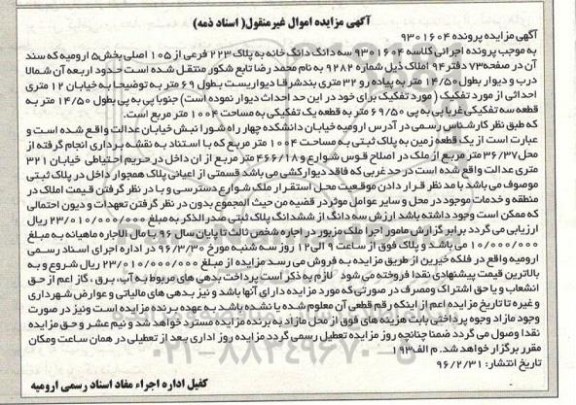 آگهی مزایده اموال غیرمنقول( اسناد ذمه)
آگهی مزایده پرونده ۹۳۰۱۶۰۴
به موجب پرونده اجرائی کلاسه ۹۳۰۱۶۰۴ سه دانگ دانگ خانه به پلاک ۲۲۳ فرعی از ۱۰۵ اصلی بخش۵ ارومیه که سند
آن در صفحه۷۳ دفتر۹۴ املاک ذیل شماره ۹۲۸۲ به نام محمد رضا تابع شکور منتقل شده است حدود اربعه آن شمالا
درب و دیوار بطول ۱۴/۵۰ متر به پیاده رو ۳۲ متری بندشرقا دیواریست بطول ۶۹ متر به توضیحا به خیابان ۱۲ متری
احداثی از مورد تفکیک ( مورد تفکیک برای خود در این حد احداث دیوار نموده است) جنوبا پی به پی بطول ۱۴/۵۰ متر به
قطعه سه تفکیکی غربا پی به پی ۶۹/۵۰ متر به قطعه یک تفکیکی به مساحت ۱۰۰۴ متر مربع است.
که طبق نظر کارشناس رسمی در آدرس ارومیه خیابان دانشکده چهار راه شورا نبش خیابان عدالت واقع شده است و
عبارت است از یک قطعه زمین به پلاک ثبتی به مساحت ۱۰۰۴ متر مربع که با استناد به نقشه برداری انجام گرفته از
محل ۳۶/۳۷ متر مربع از ملک در اصلاح قوس شوارع و ۴۶۶/۱۸ متر مربع از ان داخل در حریم احتیاطی خیابان ۳۲۱
متری عدالت واقع شده است در حد غربی که فاقد دیوارکشی می باشد قسمتی از اعیانی پلاک همجوار داخل در پلاک ثبتی
موصوف می باشد با مد نظر قرار دادن موقعیت محل استقرار ملک شوارع دسترسی و با در نظر گرفتن قیمت املاک در
منطقه و خدمات موجود در محل و سایر عوامل موثر در قضیه من حیث المجموع بدون در نظر گرفتن تعهدات و دیون احتمالی
که ممکن است وجود داشته باشد ارزش سه دانگ از ششدانگ پلاک ثبتی صدرالذکر به مبلغ ۲۳/۰۱۰/۰۰۰/۰۰۰ ریال
ارزیابی می گردد برابر گزارش مامور اجرا ملک مزبور در اجاره شخص ثالث تا پایان سال ۹۶ با مال الاجاره ماهیانه به مبلغ
۱۰/۰۰۰/۰۰۰ می باشد و پلاک فوق از ساعت ۹ الی ۱۲ روز سه شنبه مورخ ۹۶/۳/۳۰ در اداره اجرای اسناد رسمی
ارومیه واقع در فلکه خیرین از طریق مزایده به فروش می رسد مزایده از مبلغ ۲۳/۰۱۰/۰۰۰/۰۰۰ ریال شروع و به
بالاترین قیمت پیشنهادی نقدا فروخته می شود لازم به ذکر است پرداخت بدهی های مربوط به آب، برق ، گاز اعم از حق
انشعاب و یا حق اشتراک ومصرف در صورتی که مورد مزایده دارای آنها باشد و نیز بدهی های مالیاتی و عوارض شهرداری
و غیره تا تاریخ مزایده اعم از اینکه رقم قطعی آن معلوم شده یا نشده باشد به عهده برنده مزایده است ونیز در صورت
وجود مازاد وجوه پرداختی بابت هزینه های فوق از محل مازاد به برنده مزایده مسترد خواهد شد و نیم عشر و حق مزایده
نقدا وصول می گردد ضمنا چنانچه روز مزایده تعطیل رسمی گردد مزایده روز اداری بعد از تعطیلی در همان ساعت ومکان
مقرر برگزار خواهد شد. م الف۱۹۳
تاریخ انتشار: ۹۶/۲/۳۱
کفیل اداره اجراء مفاد اسناد رسمی ارومیه
۰۲۱-۸۸۳۴۹۶۷۰-۵